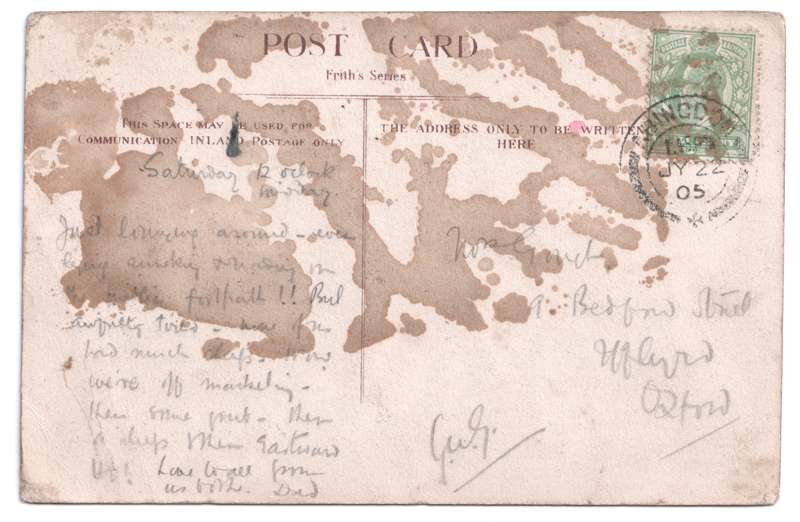 POST CARD
Frith's Series
THIS SPACE MAY BE USED FOR
COMMUNICATION INLAND POSTAGE ONLY
THE ADDRESS ONLY TO BE WRITTEN
HERE
JY 22
05
Saturday 12 o'clock
midday.
Just lounging around - even
lying smoking & reading on
the public footpath!! But
awfully tired - none of us
had much sleep. Now
we're off marketing -
then some grub - then
a sleep then Eastward
Ho! Love to all from
us both. Dad
Mrs
9 Bedford Street
Iffley Rd
Oxford
G.W.G.